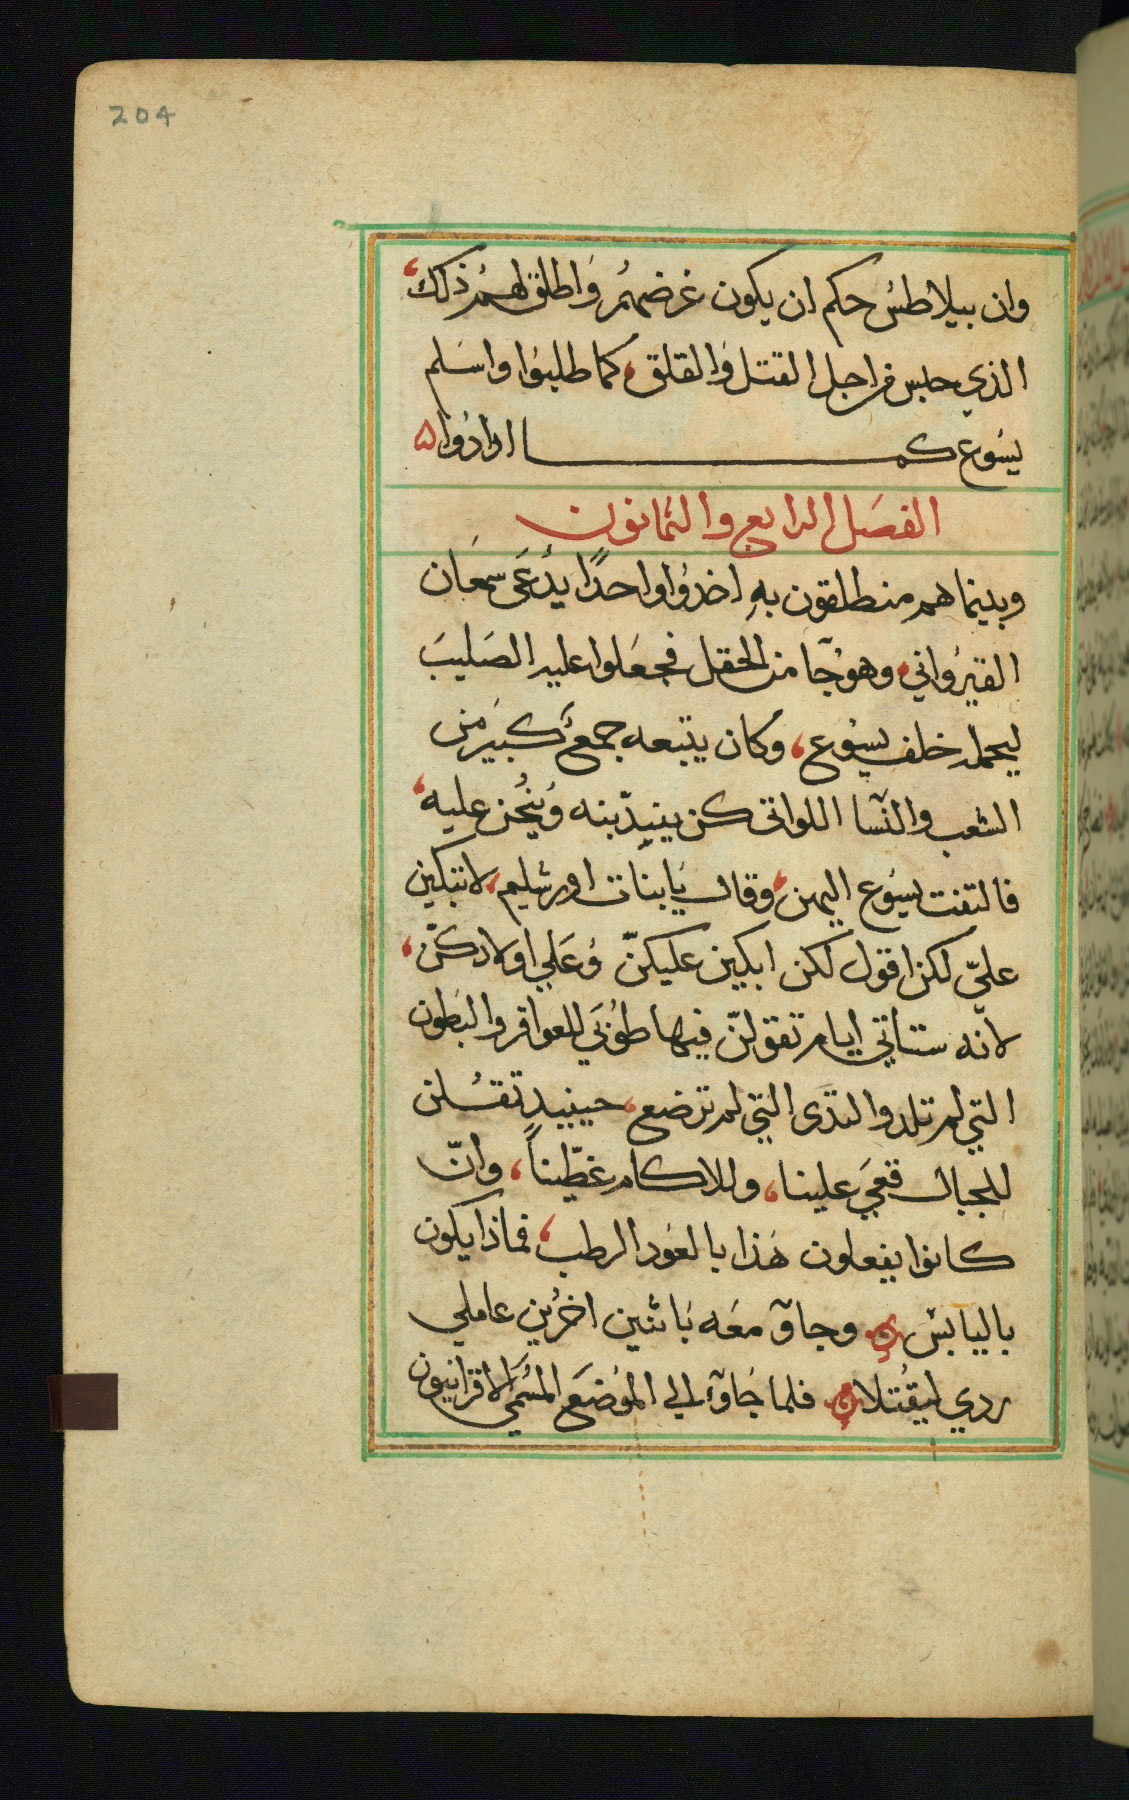 204
وان بيلاطس حكم ان يكون غرضهم واطلق لهم ذلك،
الذي حبس من اجل القتل والقلق، كما طلبوا واسلم
يسوع كما ارادوا ۵
الفصل الرابع والثمانون
وبينما هم منطلقون بهِ اخذوا واحدًا يُدعَى سمعَان
القيرُواني، وهو جآ من الحقل فجعَلوا عليه الصَليبَ
ليحمله خلف يسوع، وكان يتبعه جمعٌ كبير من
الشعب والنسآ اللواتي كن يندبنه وينُحن عليه،
فالتفت يسوع اليهن، وقال يابنات اورشليم، لا تبكين
عليّ لكن اقول لكن ابكين عليكنّ وَعَلي اولادكنّ،
لانّه ستاتي ايام تقولنّ فيها طوُبَي للعواقر والبَطون
التي لم تلد والتدَى التي لم ترضع، حينيدٍ تقُلن
للجبال قعَي علينا، وللاكام غطّيناً، وانّ
كانوا يفعلون هَذا بالعُود الرطب، فماذا يكون
باليابسْ وجاوٓ معَه باثنين اخرُين عاملي
ردي ليقُتلا فلما جَاوٓا الي الموُضعَ المسُمَي الاقرانيون